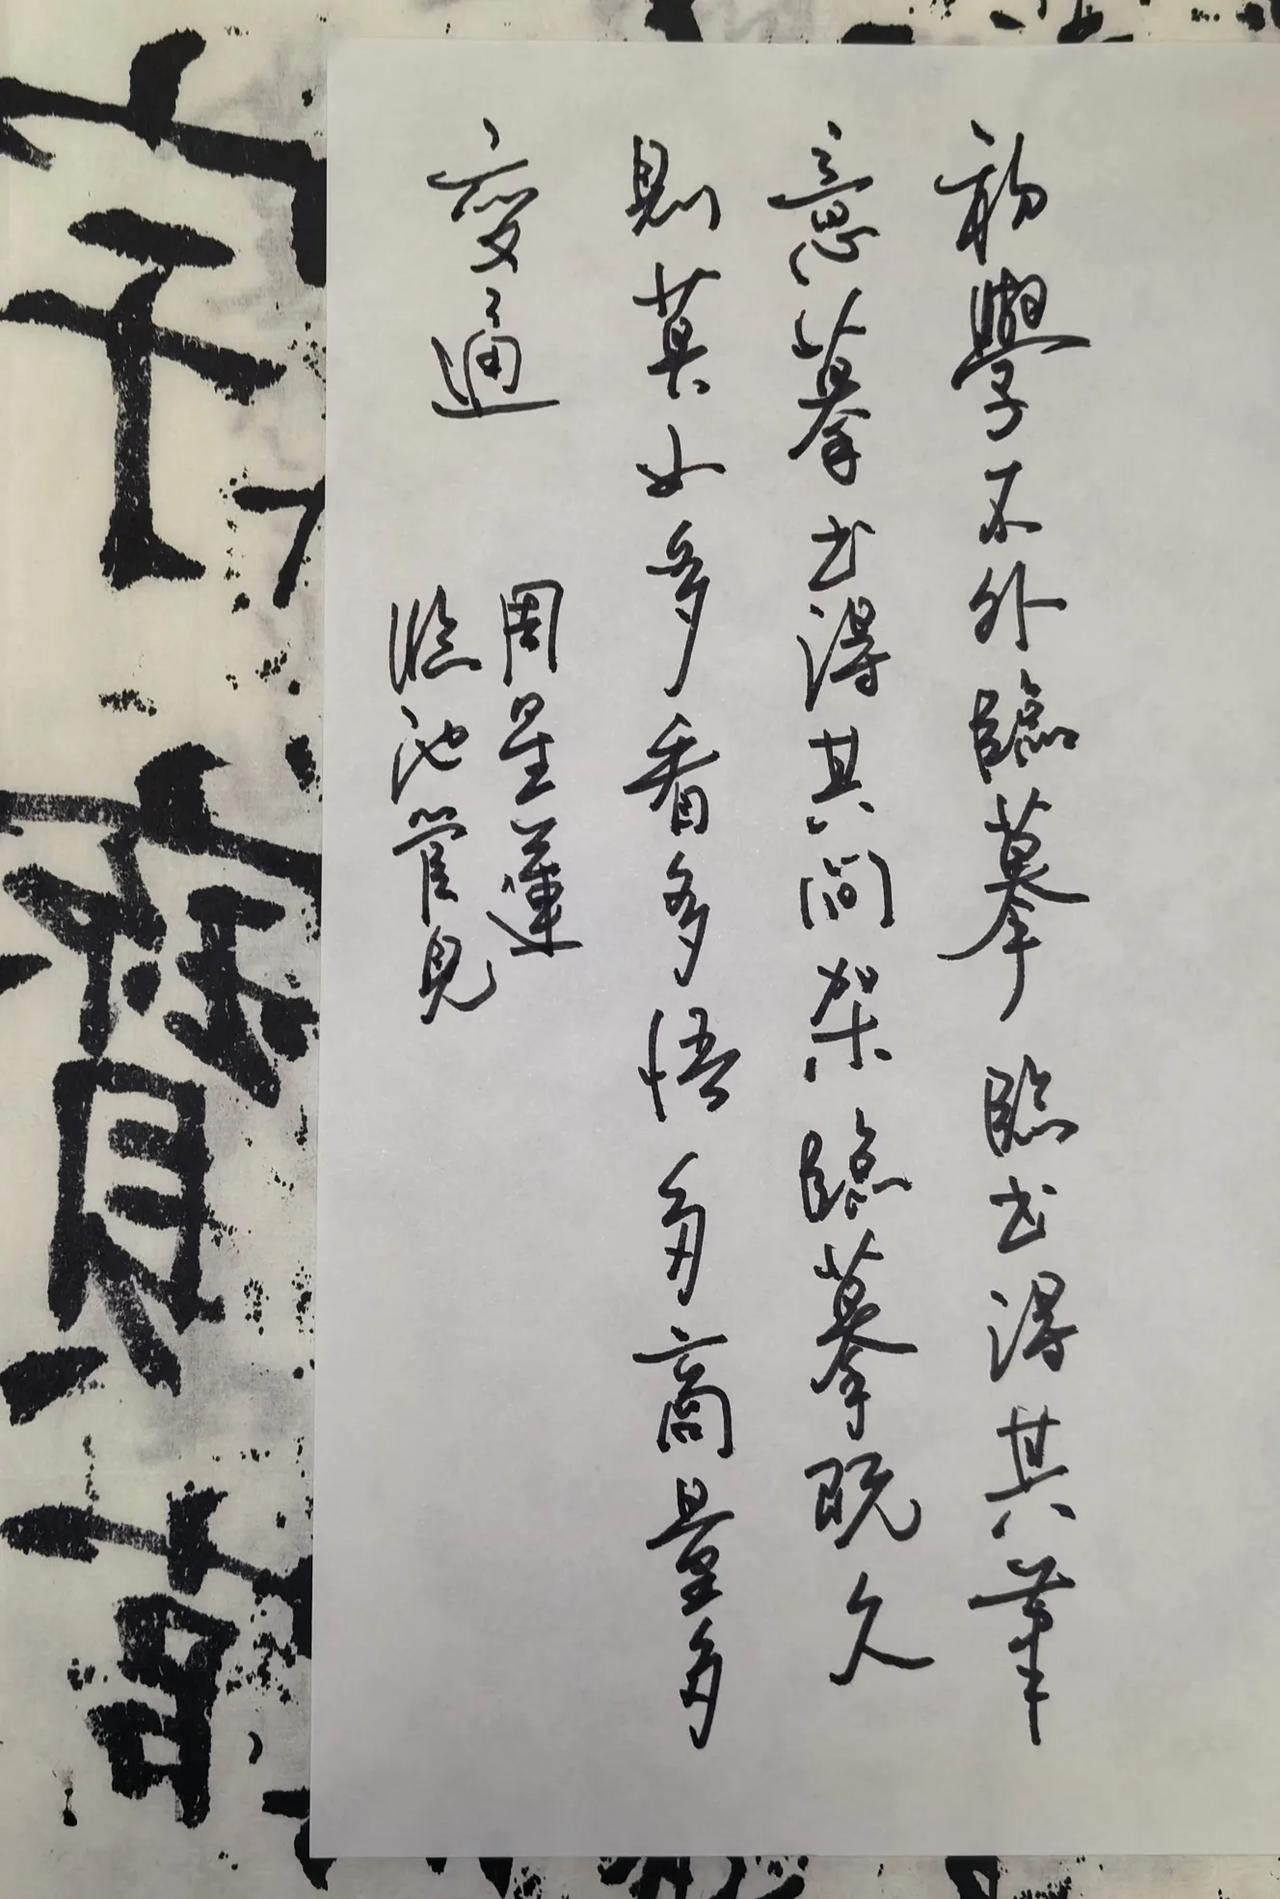 初學不外臨摹臨書得其筆
意摹書得其間架臨摹既久
則莫如多看多悟多商量多
變通
周星蓮
臨池管見